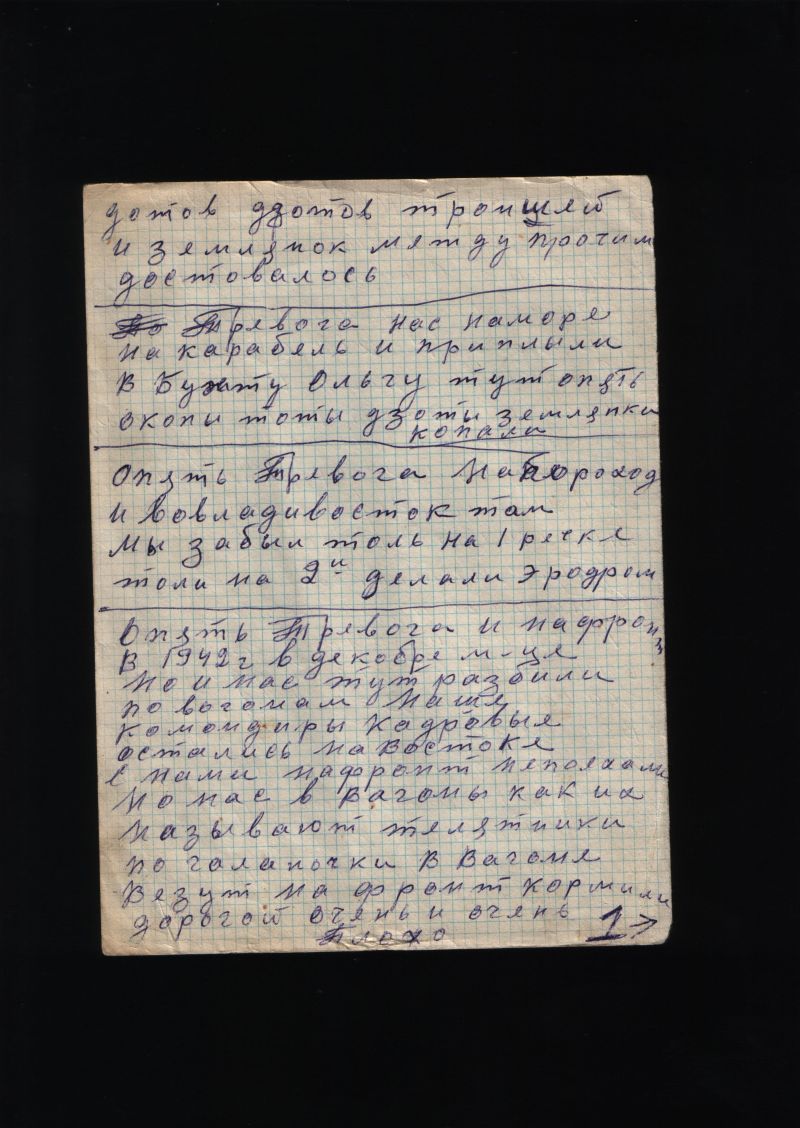 дотов дзотов траншей
и землянок между прочим
достовалось
По Тревога нас наморе
на карабель и приплыли
В Бухту Ольгу тут опять
окопы тоты дзоты землянки
копали
Опять Тревога На пороход
и вовладивосток там
мы забыл толь на 1 речке
толи на 2й делали Эродром
Опять Тревога и нафронт
В 1942 г в декобре м-це
но и нас тут разбили
по вогонам наше
командиры кадровые
остались на востоке
с нами нафронт непоехали
но нас в вагоны как их
называют телятники
по галапочки в вагоне
везут на фронт кормили
дорогой очень и очень
Плохо
1→